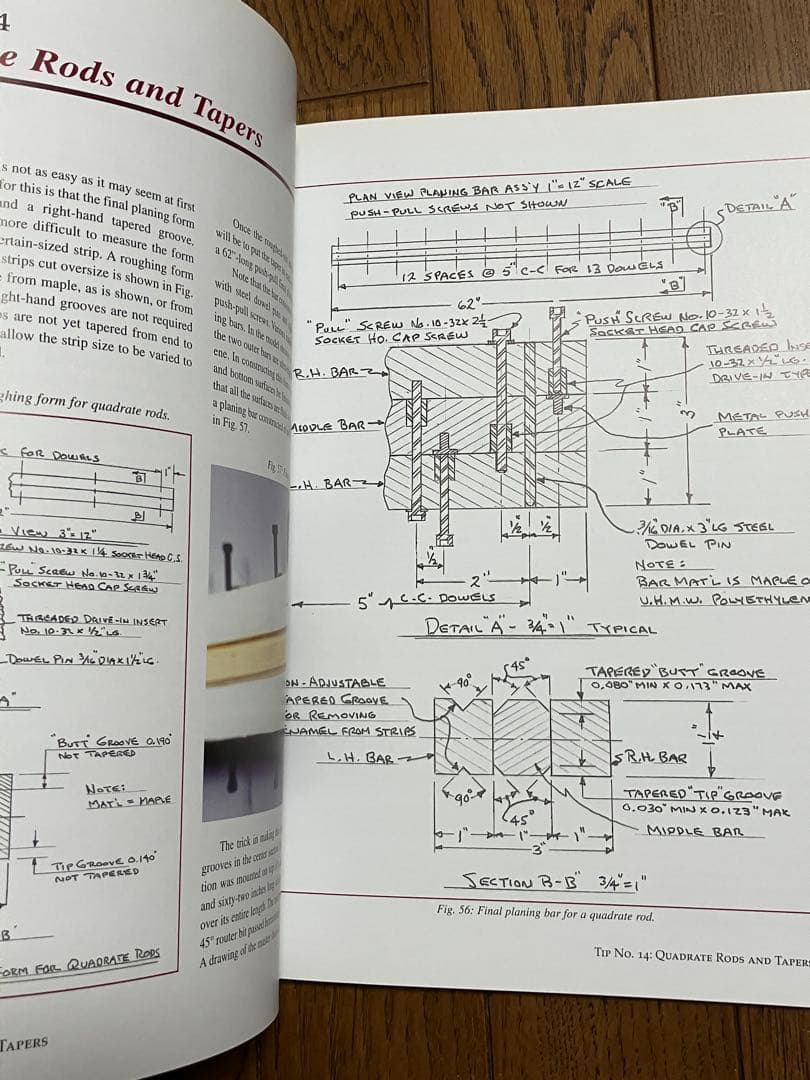 4
e Rods and Tapers
s not as easy as it may seem at first
for this is that the final planing form
and a right-hand tapered groove.
more difficult to measure the form
ertain-sized strip. A roughing form
strips cut oversize is shown in Fig.
from maple, as is shown, or from
ght-hand grooves are not required
s are not yet tapered from end to
allow the strip size to be varied to
ghing form for quadrate rods.
C FOR DOWELS
"B"
1"
"B"
VIEW 3"=12"
REW NO. 10-32 X 1¼ SOCKET HEAD C.S.
"PULL" SCREW NO. 10-32 X 1¾"
SOCKET HEAD CAP SCREW
THREADED DRIVE-IN INSERT
NO. 10-32 X ½" LG.
DOWEL PIN 3/16" DIA X 1½" LG.
A"
"BUTT" GROOVE 0.190"
NOT TAPERED
NOTE:
MAT'L = MAPLE
TIP GROOVE 0.140"
NOT TAPERED
B"
FORM FOR QUADRATE RODS
TAPERS
Once the
will be to put the
a 62"-long push-pull
Note that the bar
with steel dowel pins
push-pull screws.
ing bars. In the model
the two outer bars are
ene. In constructing
and bottom surfaces
that all the surfaces are
a planing bar constructed
in Fig. 57.
Fig. 57:
The trick in making
grooves in the center
tion was mounted on top
and sixty-two inches long
over its entire length.
45° router bit passed
A drawing of the
PLAN VIEW PLANING BAR ASS'Y 1"=12" SCALE
PUSH-PULL SCREWS NOT SHOWN
"B"
DETAIL "A"
12 SPACES @ 5" C-C FOR 13 DOWELS
"B"
62"
"PULL" SCREW NO. 10-32 X 2½
SOCKET HD. CAP SCREW
"PUSH" SCREW NO. 10-32 X 1½
SOCKET HEAD CAP SCREW
THREADED INSE
10-32 X ½" LG.
DRIVE-IN TYPE
R.H. BAR
MIDDLE BAR
L.H. BAR
1"
1"
1"
3"
METAL PUSH
PLATE
½"
½"
½"
2"
1"
5" C-C- DOWELS
3/16" DIA. X 3" LG STEEL
DOWEL PIN
NOTE:
BAR MAT'L IS MAPLE O
U.H.M.W. POLYETHYLEN
DETAIL "A" - ¾"=1" TYPICAL
ON-ADJUSTABLE
TAPERED GROOVE
OR REMOVING
ENAMEL FROM STRIPS
L.H. BAR
90°
45°
TAPERED "BUTT" GROOVE
0.080" MIN X 0.173" MAX
R.H. BAR
TAPERED "TIP" GROOVE
0.030" MIN X 0.123" MAX
MIDDLE BAR
90°
45°
1"
1"
1"
3"
SECTION B-B" ¾"=1"
Fig. 56: Final planing bar for a quadrate rod.
TIP NO. 14: QUADRATE RODS AND TAPERS